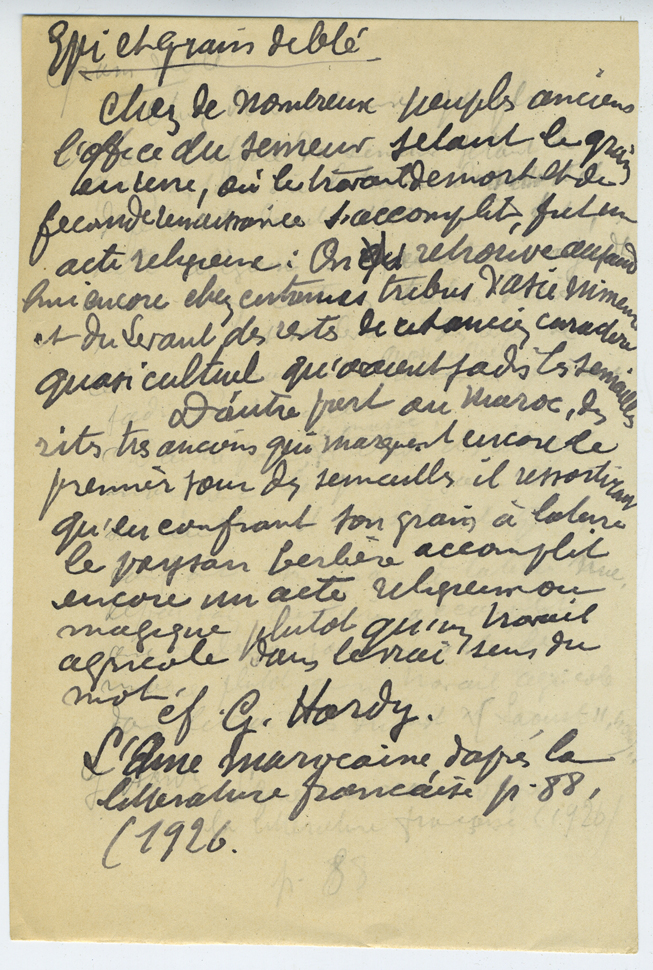 Epi et grain de blé
Chez de nombreux peuples anciens
l'office du semeur jetant le grain
en terre, où le travail de mort et de
feconde renaissance s'accomplit, fut un
acte religieux : On retrouve aujourd
hui encore chez certaines tribus d'Asie mineure
et du Levant des restes de cet ancien caractère
quasi cultuel qu'avaient jadis les semailles
D'autre part au Maroc, des
rites tres anciens qui marquent encore le
premier jour des semailles il ressortirait
qu'en confiant son grain à la terre
le paysan berbère accomplit
encore un acte religieux ou
magique plutot qu'un travail
agricole dans le vrai sens du
mot.
cf. G. Hardy.
L'Ame marocaine d'après la
litterature francaise p. 88,
(1926.
p. 88